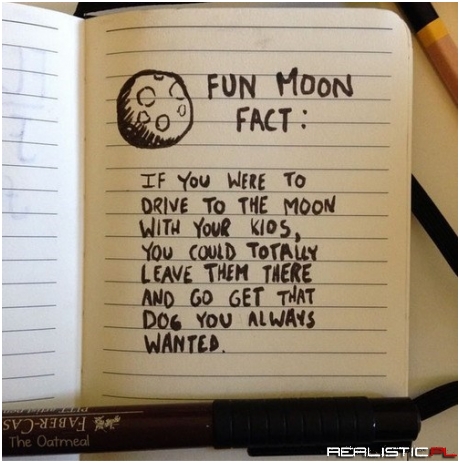 FUN MOON
FACT:
IF YOU WERE TO
DRIVE TO THE MOON
WITH YOUR KIDS,
YOU COULD TOTALLY
LEAVE THEM THERE
AND GO GET THAT
DOG YOU ALWAYS
WANTED.
FABER-CAS
The Oatmeal
REALISTIC.PL